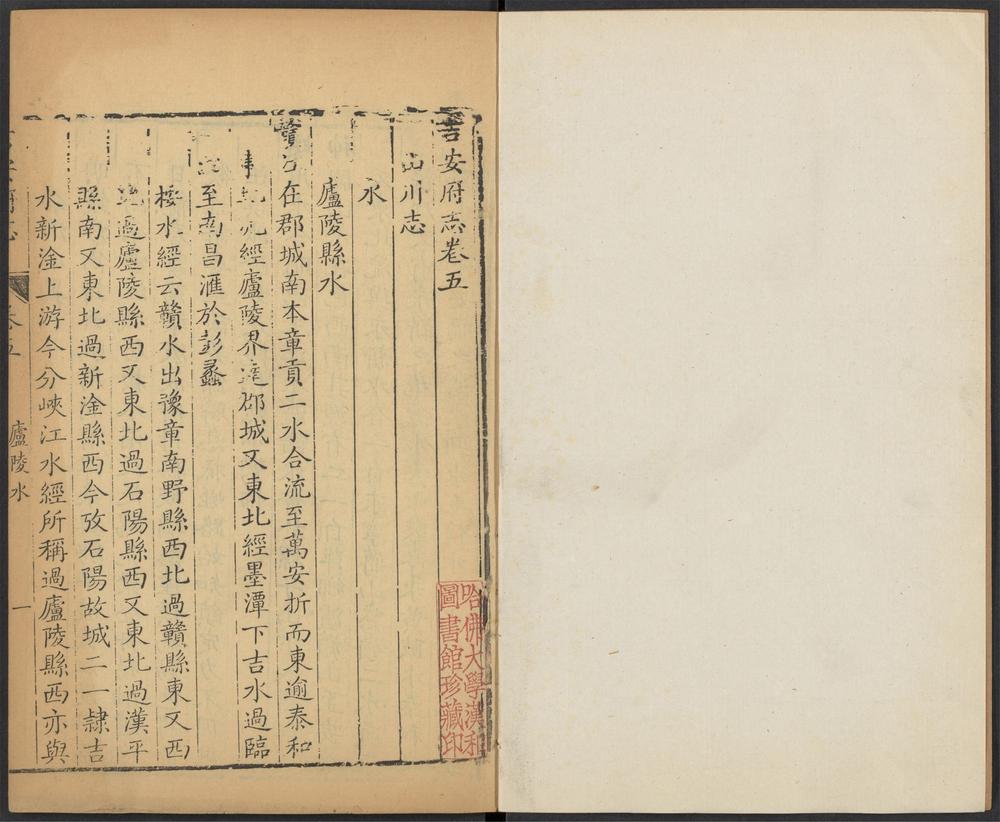 吉安府志卷五
山川志
水
廬陵縣水
贛水在郡城南本章貢二水合流至萬安折而東逾泰和
經廬陵界達郡城又東北經墨潭下吉水過臨
至南昌滙於彭蠡
按水經云贛水出豫章南野縣西北過贛縣東又西
北過廬陵縣西又東北過石陽縣西又東北過漢平
縣南又東北過新淦縣西今攷石陽故城二一隸吉
水新淦上游今分峽江水經所稱過廬陵縣西亦與
卷五
廬陵水
一
哈佛大學漢和
圖書館珍藏印